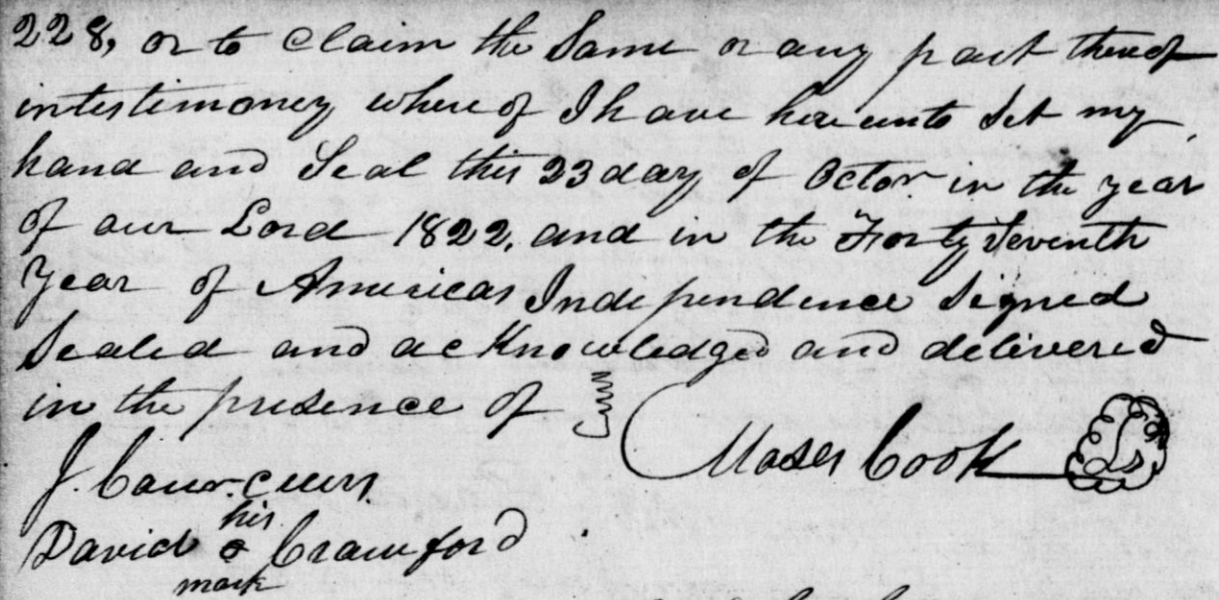 228, or to Claim the Same or any part thereof
intestimoney where of I have hereunto Set my
hand and Seal this 23 day of Octor in the year
of our Lord 1822, and in the Forty Seventh
Year of Americas Independence Signed
Sealed and acKnowledged and delivered
in the presence of
Moses Cook
J.
his
David o Crawford
mark